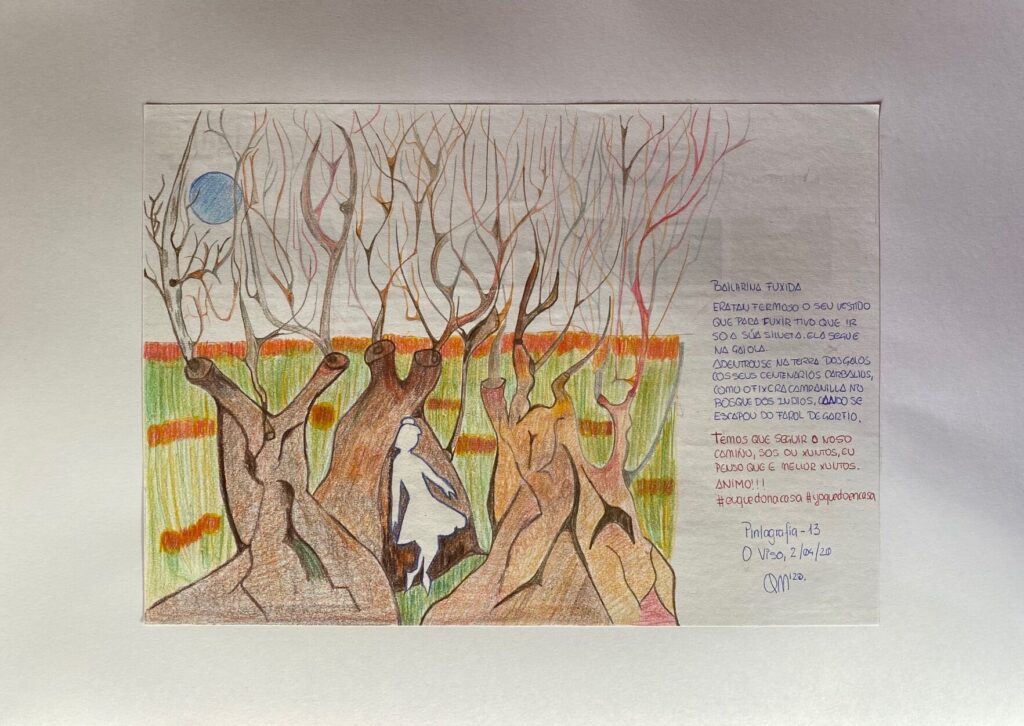 BAILARINA FUXIDA
ERA TAN FERMOSO O SEU VESTIDO
QUE PARA FUXIR TIVO QUE IR
SO A SÚA SILUETA. ELA SEGUE
NA GAIOLA.
ADENTROUSE NA TERRA DOS GALOS
COS SEUS CENTENARIOS CARBALLOS,
COMO O FIXERA CAMPANILLA NO
BOSQUE DOS INDIOS, CANDO SE
ESCAPOU DO FAROL DE GARFIO.
TEMOS QUE SEGUIR O NOSO
CAMIÑO, SOS OU XUNTOS, EU
PENSO QUE E MELLOR XUNTOS.
ANIMO!!!
#euquedonacasa #yoquedoencasa
Pintografia-13
O Viso, 2/04/20
QM'20.